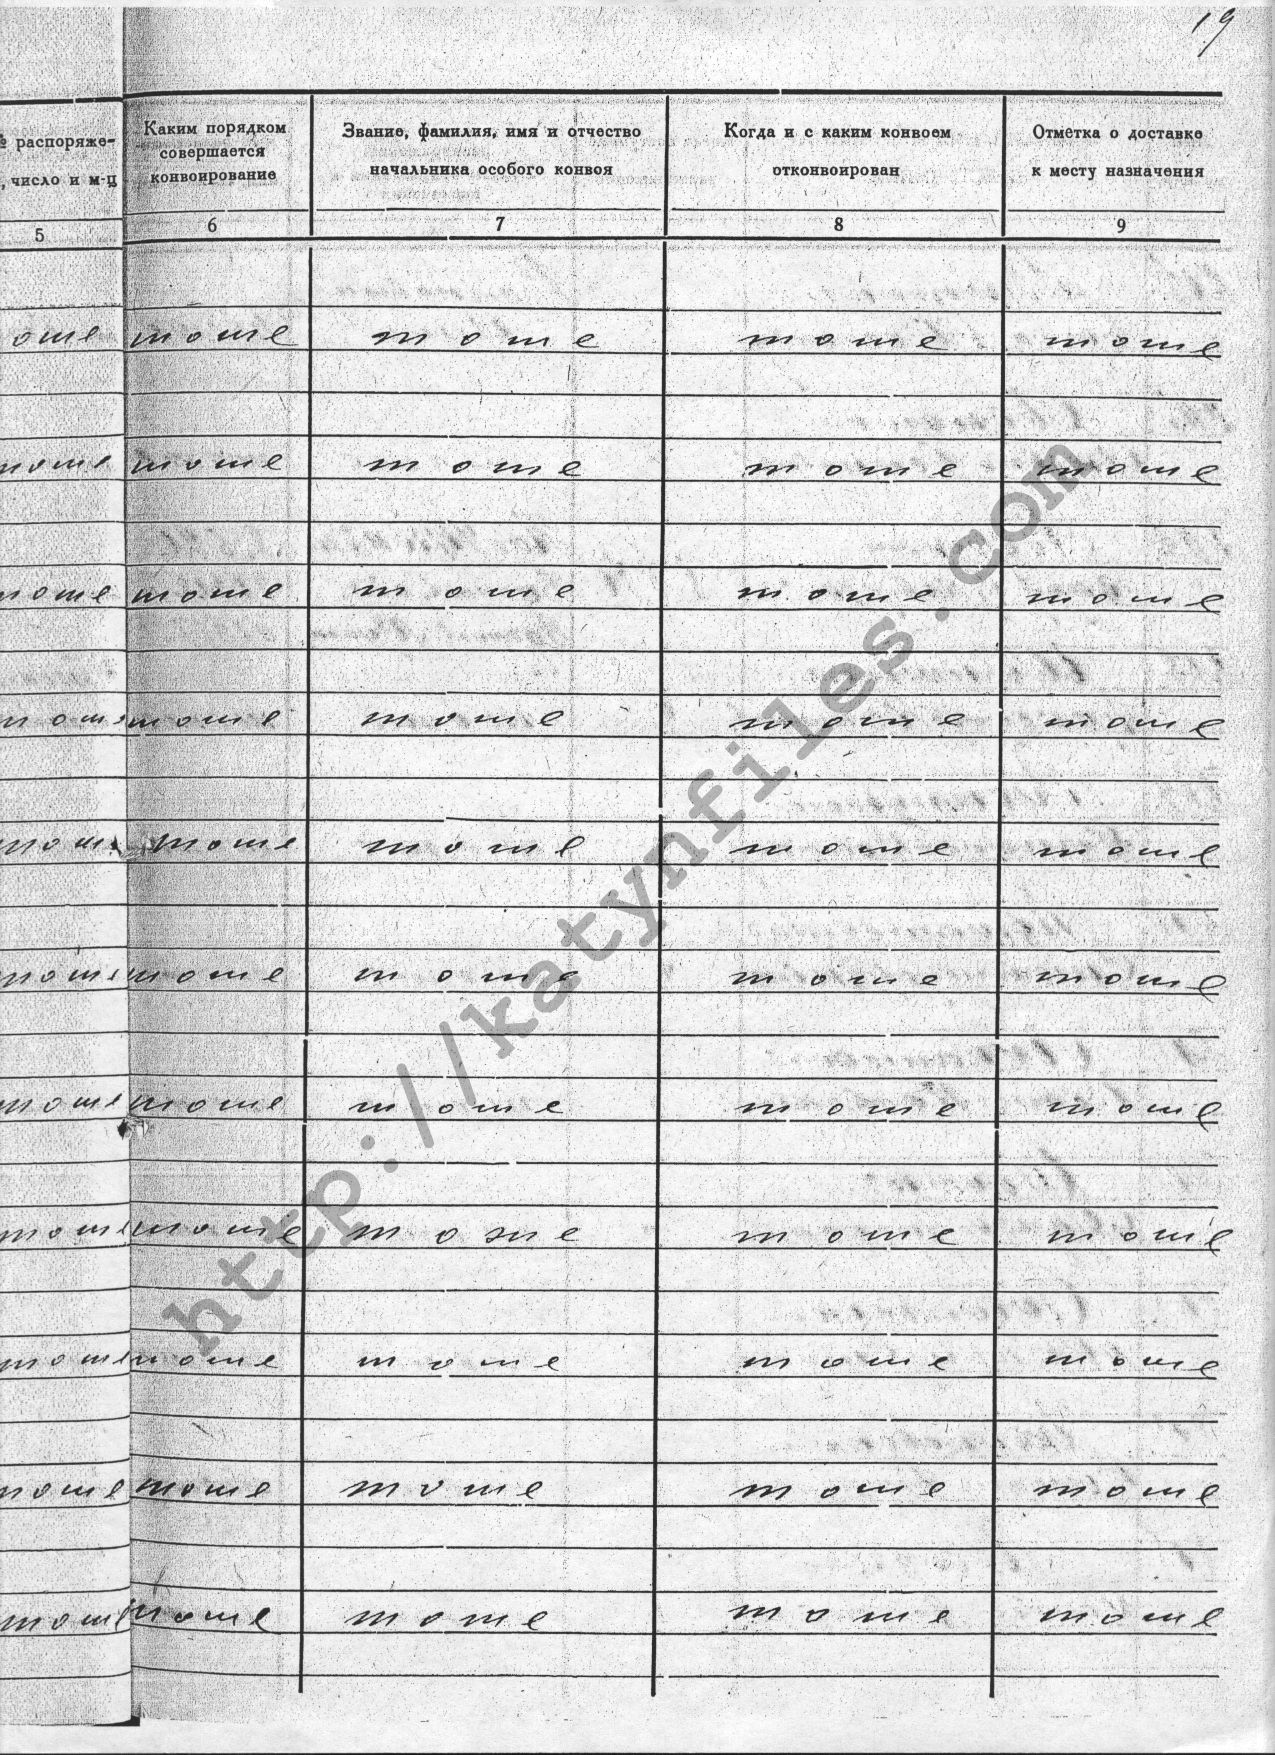 19
№ распоряже-
, число и м-ц
Каким порядком
совершается
конвоирование
Звание, фамилия, имя и отчество
начальника особого конвоя
Когда и с каким конвоем
отконвоирован
Отметка о доставке
к месту назначения
5 6 7 8 9
оше тоше тоше тоше тоше
тоше тоше тоше тоше тоше
тоше тоше тоше тоше тоше
тоше тоше тоше тоше тоше
тоше тоше тоше тоше тоше
тоше тоше тоше тоше тоше
тоше тоше тоше тоше тоше
тоше тоше тоже тоше тоше
тоше тоше тоше тоше тоше
тоше тоше тоше тоше тоше
тоше тоше тоше тоше тоше
http://katynfiles.com